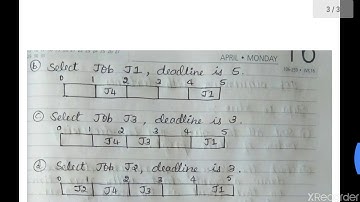 3 / 3
APRIL • MONDAY
16
ⓑ Select Job J1, deadline is 5.
0 1 2 3 4 5
J4 J1
ⓒ Select Job J3, deadline is 3.
0 1 2 3 4 5
J4 J3 J1
ⓓ Select Job J2, deadline is 3.
0 1 2 3 4 5
J2 J4 J3 J1
XRecorder